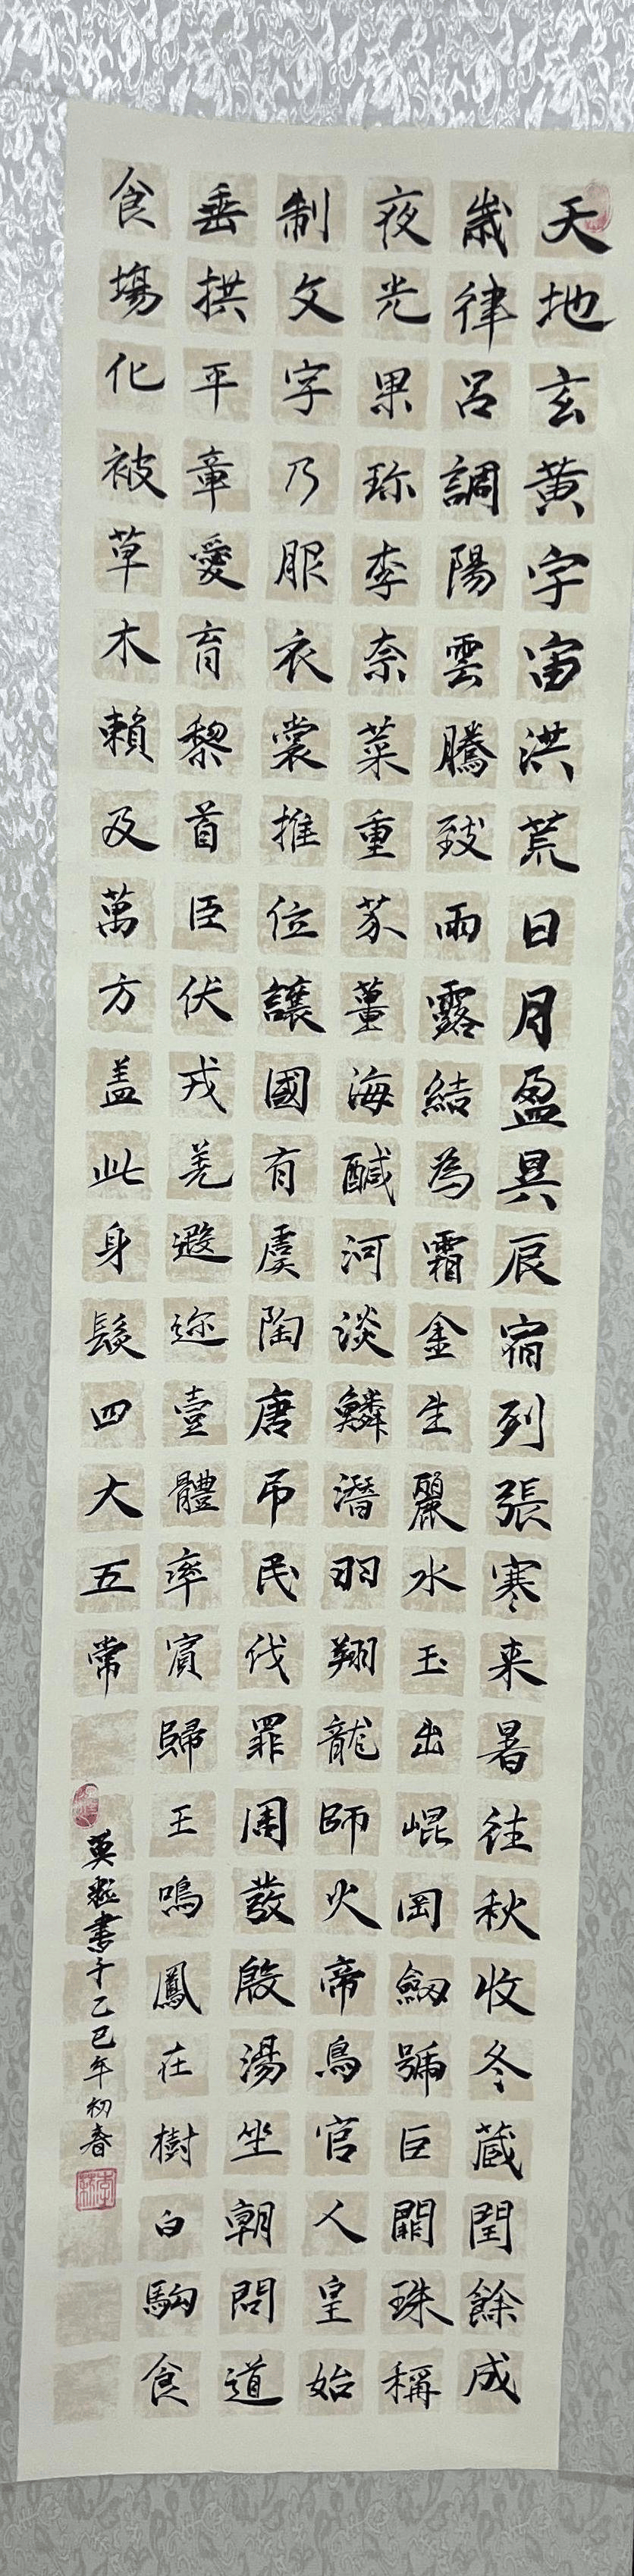 天地玄黃字宙洪荒日月盈昃辰宿列張寒来暑往秋收冬藏閏餘成
歲律呂調陽雲騰致雨露結為霜金生麗水玉出崐岡劒號巨闕珠稱
夜光果珎李奈菜重芥薑海醎河淡鱗潛羽翔龍師火帝鳥官人皇始
制文字乃服衣裳推位讓國有虞陶唐吊民伐罪周發殷湯坐朝問道
垂拱平章愛育黎首臣伏戎羌遐迩壹體率賓歸王鳴鳳在樹白駒食
食場化被草木賴及萬方盖此身髮四大五常
書于乙巳年初春